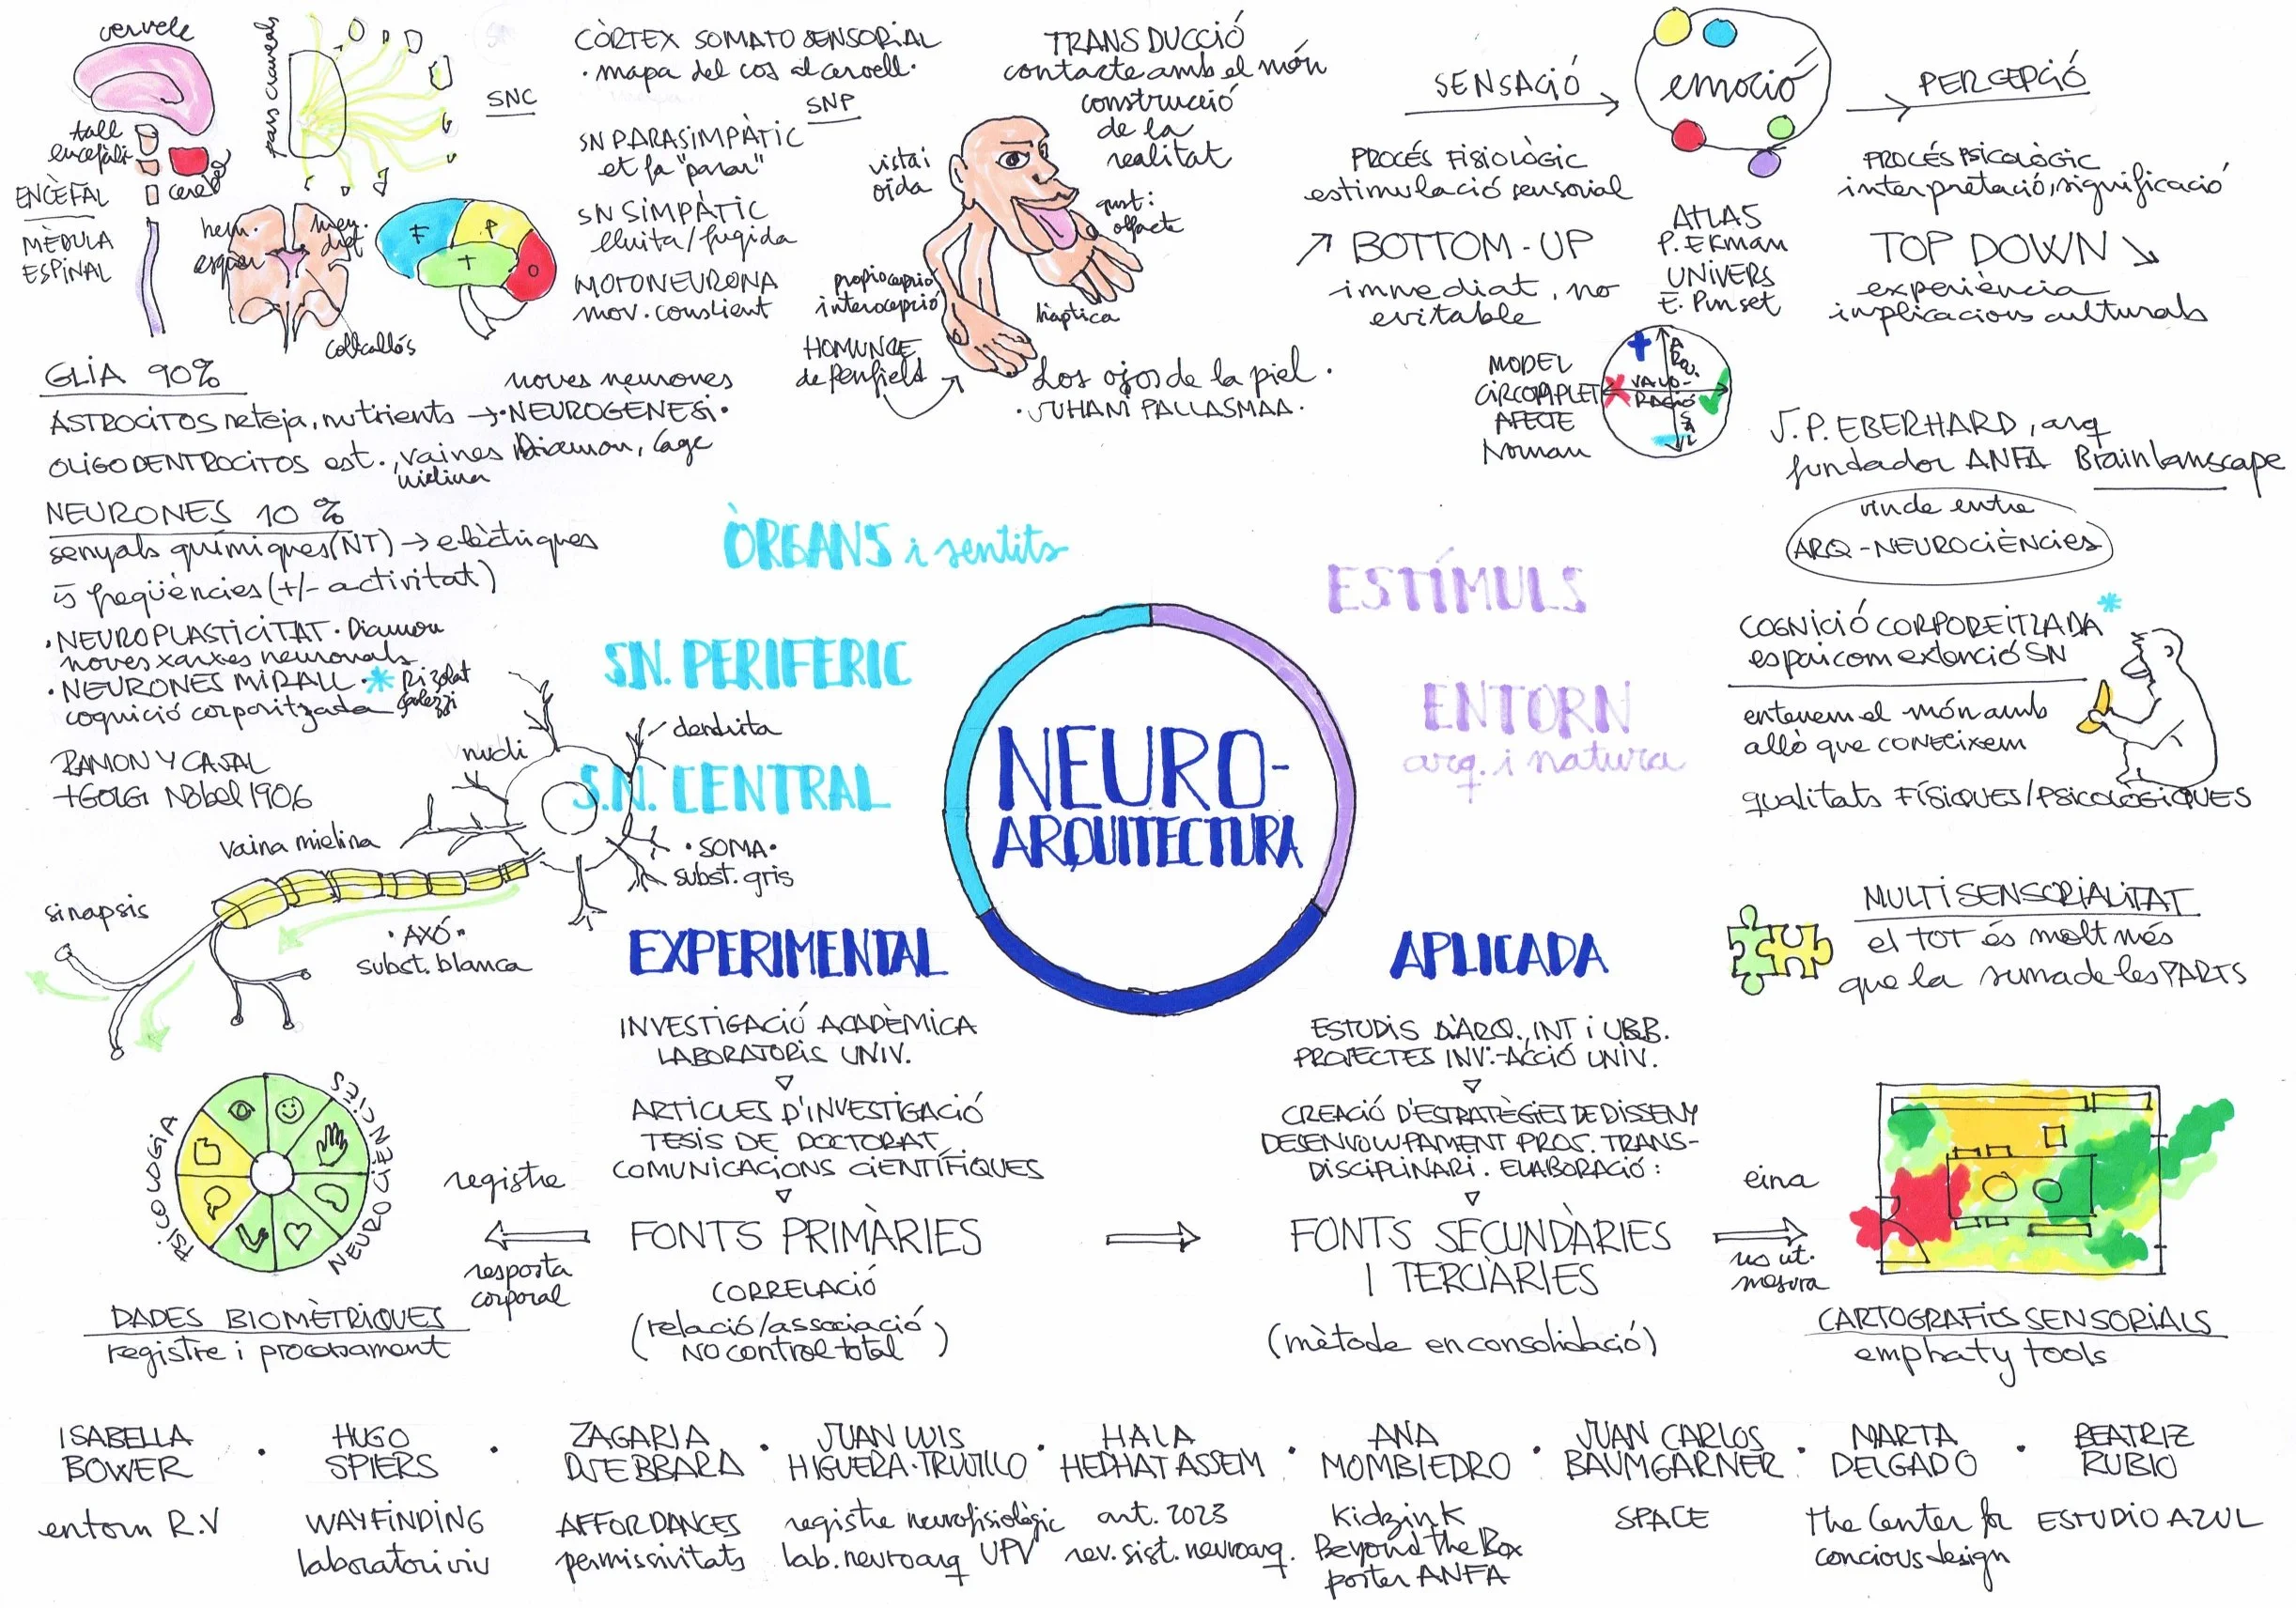 cervele
tall
encefàli
cereb
ENCÈFAL
MÈDULA
ESPINAL
pars craneals
hem.
esquer
hem.
dret
F
P
T
O
SNC
CÒRTEX SOMATO SENSORIAL
· mapa del cos al cervell ·
SNP
SN PARASIMPÀTIC
et fa "parar"
SN SIMPÀTIC
lluita/fugida
MOTONEURONA
mov. conscient
TRANSDUCCIÓ
contacte amb el món
construcció
de la
realitat
vista i
oïda
gust i
olfacte
propiocepció
interocepció
hàptica
HOMUNCLE
de Penfield
Los ojos de la piel.
· JUHANI PALLASMAA ·
SENSACIÓ
emoció
PERCEPCIÓ
PROCÉS FISIOLÒGIC
estimulació sensorial
BOTTOM-UP
immediat, no
evitable
ATLAS
P. EKMAN
UNIVERS
E. Punset
PROCÉS PSICOLÒGIC
interpretació, significació
TOP DOWN
experiència
implicacions culturals
MODEL
CIRCOMPLET
AFECTE
Norman
VALO-
RACIÓ
J. P. EBERHARD, arq
fundador ANFA Brainlanscape
vincle entre
ARQ-NEUROCIÈNCIES
GLIA 90%
ASTROCITOS neteja, nutrients →
noves neurones
· NEUROGÈNESI ·
Diamon, Gage
OLIGODENTROCITOS est., vaines
mielina
NEURONES 10 %
senyals químiques (NT) → elèctriques
5 freqüències (+/- activitat)
· NEUROPLASTICITAT · Diamon
noves xarxes neuronals
· NEURONES MIRALL · * Rizolat
cognició corporitzada
RAMON Y CAJAL
+ GOLGI Nobel 1906
nucli
dendrita
vaina mielina
sinapsis
· SOMA ·
subst. gris
· AXÓ ·
subst. blanca
ÒRGANS i sentits
S.N. PERIFERIC
S.N. CENTRAL
ESTÍMULS
ENTORN
arq. i natura
NEURO-
ARQUITECTURA
COGNICIÓ CORPOREITZADA *
espai com extenció SN
entenem el món amb
allò que coneixem
qualitats FÍSIQUES/PSICOLÒGIQUES
MULTISENSORIALITAT
el TOT és molt més
que la suma de les PARTS
EXPERIMENTAL
INVESTIGACIÓ ACADÈMICA
LABORATORIS UNIV.
ARTICLES D'INVESTIGACIÓ
TESIS DE DOCTORAT
COMUNICACIONS CIENTÍFIQUES
FONTS PRIMÀRIES
CORRELACIÓ
(relació/associació
NO control total)
APLICADA
ESTUDIS D'ARQ., INT i URB.
PROJECTES INV.-ACCIÓ UNIV.
CREACIÓ D'ESTRATÈGIES DE DISSENY
DESENVOLUPAMENT PROJ. TRANS-
DISCIPLINARI. ELABORACIÓ:
FONTS SECUNDÀRIES
I TERCIÀRIES
(mètode en consolidació)
PSICOLOGIA
NEUROCIÈNCIES
registre
resposta
corporal
DADES BIOMÈTRIQUES
registre i processament
eina
no ut.
mesura
CARTOGRAFIES SENSORIALS
emphaty tools
ISABELLA
BOWER
entorn R.V
HUGO
SPIERS
WAYFINDING
laboratori viu
ZAGARIA
DJEBBARA
AFFORDANCES
permissivitats
JUAN LUIS
HIGUERA-TRUJILLO
registre neurofisiològic
lab. neuroarq UPV
HALA
HEDHAT ASSEM
art. 2023
rev. sist. neuroarq.
ANA
MOMBIEDRO
Kidzink
Beyond the Box
poster ANFA
JUAN CARLOS
BAUMGARNER
SPACE
MARTA
DELGADO
the Center for
concious design
BEATRIZ
RUBIO
ESTUDIO AZUL